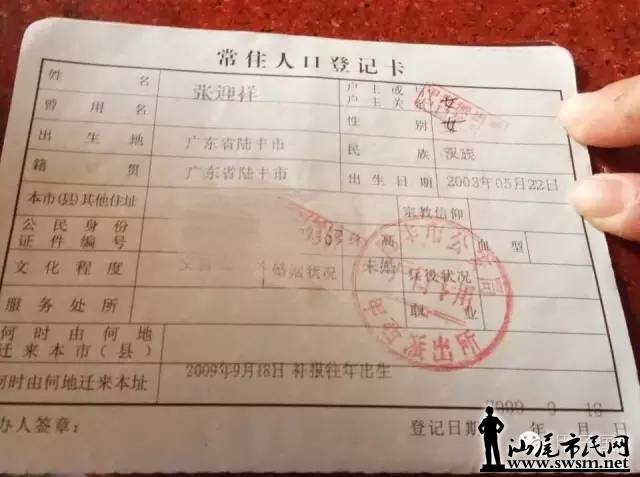 常住人口登记卡
姓名 张迎祥 户主或 户主关系 女
曾用名 性别 女
出生地 广东省陆丰市 民族 汉族
籍贯 广东省陆丰市 出生日期 2003年05月22日
本市(县)其他住址 宗教信仰
公民身份证件编号 身高 血型
文化程度 婚姻状况 未婚 兵役状况
服务处所 职业
何时由何地迁来本市(县)
何时由何地迁来本址 2009年9月18日 补报往年出生
办人签章: 登记日期: 2009 年 9 月 18 日
派出所
汕尾市民网
www.swsm.net